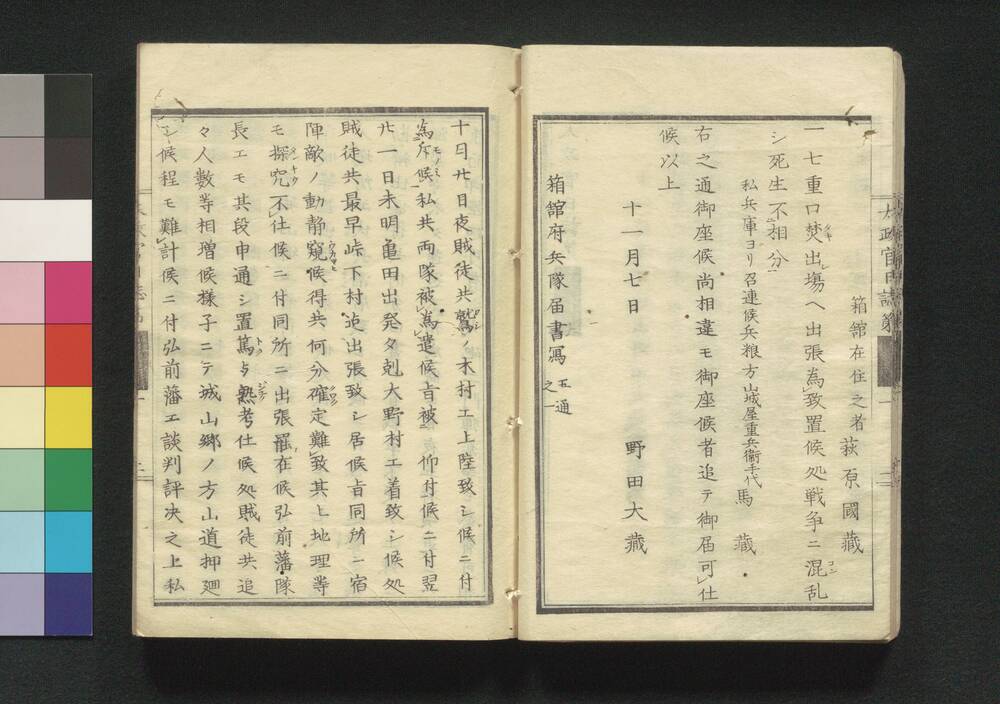 箱舘在住之者 萩原國藏
一七重口焚出塲ヘ出張為致置候処戦争ニ混乱
シ死生不相分
私兵庫ヨリ召連候兵粮方山城屋重兵衞手代 馬藏
右之通御座候尚相違モ御座候者追テ御届可仕
候以上
十一月七日 野田大藏
箱舘府兵隊届書寫 五通之一
十月廿日夜賊徒共鷲ノ木村エ上陸致シ候ニ付
為斥候私共両隊被為遣候旨被 仰付候ニ付翌
廿一日未明亀田出発夕剋大野村エ着致シ候処
賊徒共最早峠下村迠出張致シ居候旨同所ニ宿
陣敵ノ動静窺候得共何分確定難致其上地理等
モ探究不仕候ニ付同所ニ出張罷在候弘前藩隊
長エモ其段申通シ置篤ト熟考仕候処賊徒共追
々人數等相増候様子ニテ城山郷ノ方山道押廻
シ候程モ難計候ニ付弘前藩エ談判評决之上私